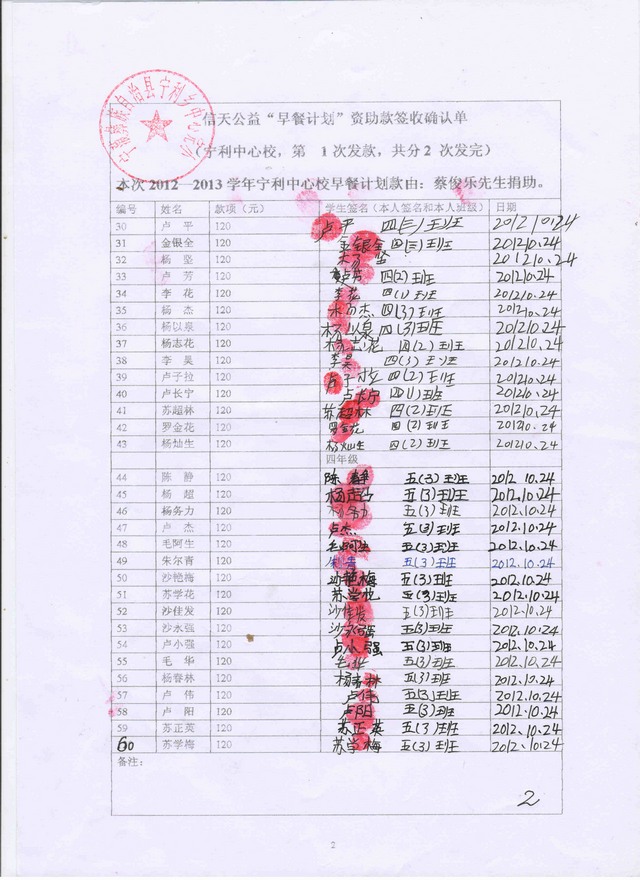 宁利乡中心完小
信天公益“早餐计划”资助款签收确认单
（宁利中心校，第 1次发款，共分2 次发完）
本次 2012—2013学年宁利中心校早餐计划款由：蔡俊乐先生捐助。
编号 姓名 款项（元） 学生签名（本人签名和本人班级） 日期
30 卢 平 120 卢平 四(三)班 2012 10.24
31 金银全 120 金银全 四(三)班 2012 10.24
32 杨 坚 120 2012 10.24
33 卢 芳 120 卢芳 四(2)班 2012 10.24
34 李 花 120 李花 四(1)班 2012 10.24
35 杨 杰 120 四(3)班 2012 10.24
36 杨以泉 120 杨以泉 四(3)班 2012 10.24
37 杨志花 120 杨志花 四(2)班 2012 10.24
38 李 昊 120 李昊 四(3)班 2012 10.24
39 卢子拉 120 卢子拉 四(2)班 2012 10.24
40 卢长宁 120 卢长宁 四(1)班 2012 10.24
41 苏超林 120 苏超林 四(2)班 2012 10.24
42 罗金花 120 四(2)班 2012 10.24
43 杨灿生 120 杨灿生 四(2)班 2012 10.24
四年级
44 陈 静 120 陈静 五(3)班 2012.10.24
45 杨 超 120 杨超 五(3)班 2012.10.24
46 杨务力 120 五(3)班 2012.10.24
47 卢 杰 120 卢杰 五(3)班 2012.10.24
48 毛阿生 120 毛阿生 五(3)班 2012.10.24
49 朱尔青 120 五(3)班 2012.10.24
50 沙艳梅 120 沙艳梅 五(3)班 2012.10.24
51 苏学花 120 苏学花 五(3)班 2012.10.24
52 沙佳发 120 沙佳发 五(3)班 2012.10.24
53 沙永强 120 沙永强 五(3)班 2012.10.24
54 卢小强 120 卢小强 五(3)班 2012.10.24
55 毛 华 120 毛华 五(3)班 2012.10.24
56 杨春林 120 杨春林 五(3)班 2012.10.24
57 卢 伟 120 卢伟 五(3)班 2012.10.24
58 卢 阳 120 卢阳 五(3)班 2012.10.24
59 苏正英 120 苏正英 五(3)班 2012.10.24
60 苏学梅 120 苏学梅 五(3)班 2012.10.24
备注：
2
2